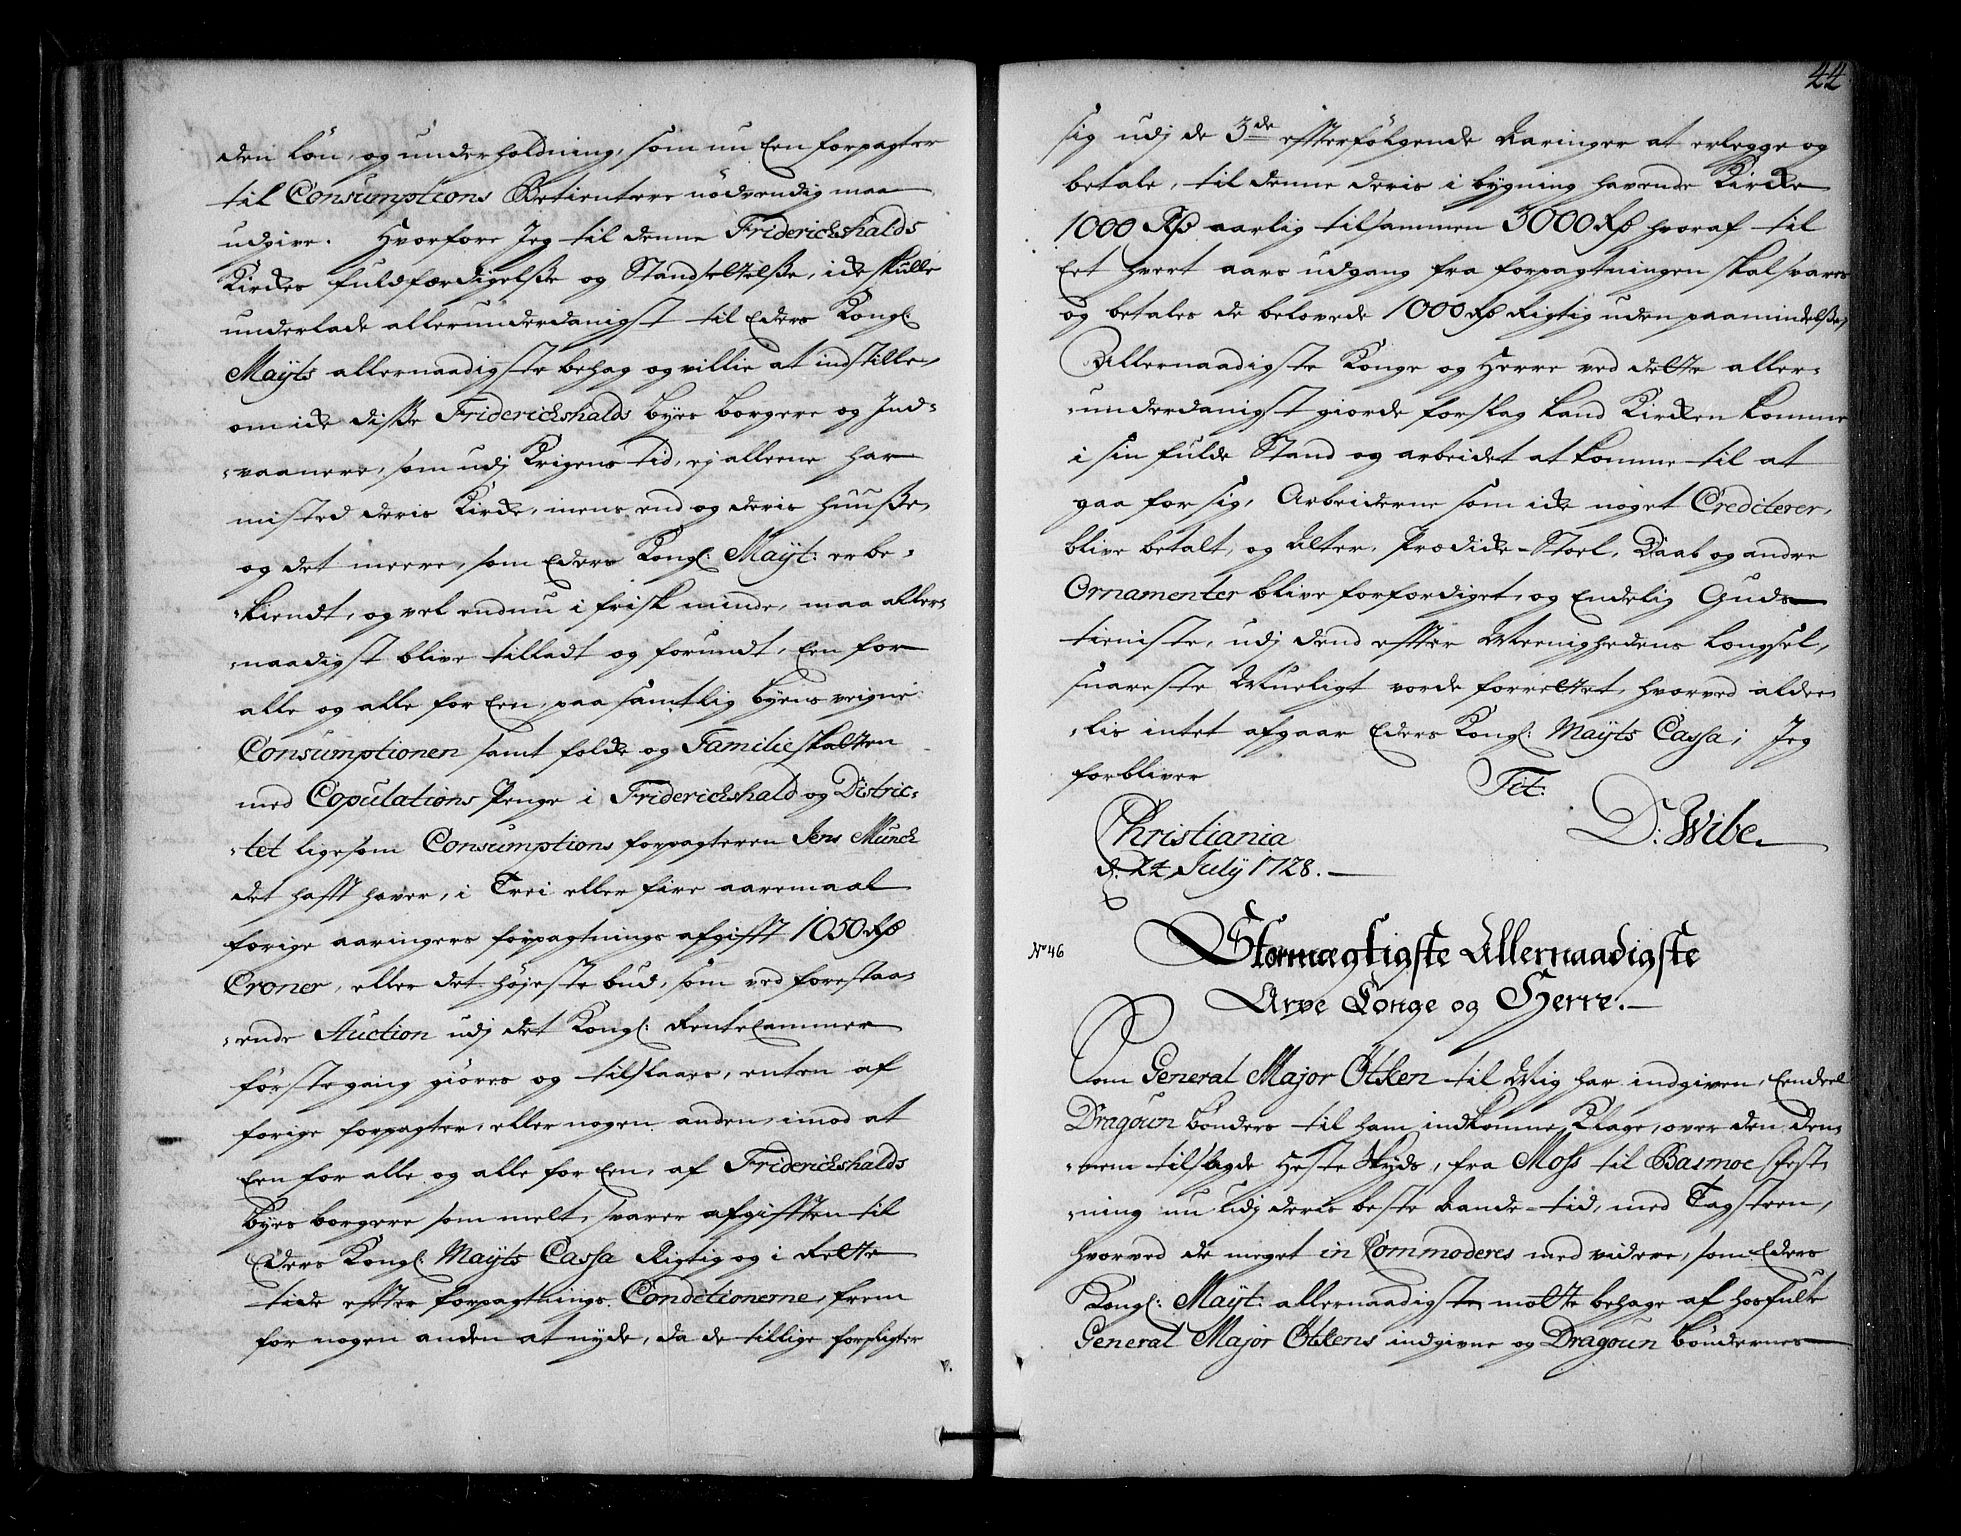 den løn, og underholdning, som nu Een forpagter
til Consumptions Betientere nødvendig maa
udgive. Hvorfore Jeg til denne Friderichshalds
Kirckes fuldfærdigelsse og Standsettelsse, icke skulle
underlade allerunderdanigst til Eders Kongl:
Mayts allernaadigste behag og villie at indstille,
om icke disse Friderichshalds byes borgere og Ind-
-vaanere, som udj Krigens tid, ej alleene har
misted deris Kircke, mens end og deris Huusse,
og det meere, som Eders Kongl: Mayt: er be-
-kiendt, og vel endnu i frisk minde, maa aller-
-naadigst blive tilladt og forundt, Een for
alle og alle for Een, paa samtlig byens veigne
Consumptionen samt folcke og Familie skatten
med Copulations Penge i Friderichshald og Distric-
-tet ligesom Consumptions forpagteren Jens Munch
det hafft haver, i Trei eller fire aaremaal
forige aaringers forpagtnings afgifft 1050 Rd
Croner, eller det højeste bud, som ved forestaa-
-ende Auction udj det Kongl: RenteCammer
første gang giøres og tilslaaes, enten af
forige forpagter, eller nogen anden, imod at
Een for alle og alle for Een, af Friderichshalds
Byes borgere som melt, svarer afgifften til
Eders Kongl: Mayts Cassa Rigtig og i Rette
tide effter forpagtnings Conditionerne, frem
for nogen anden at nyde, da de tillige forpligter
44
sig udj de 3de effterfølgende Aaringer at erlegge og
betale, til denne deris i bygning havende Kircke
1000 Rd aarlig tilsammen 3000 Rd hvoraf til
Eet hvert aars udgang fra forpagtningen skal svares
og betales de belovede 1000 Rd Rigtig uden paamindelsse,
Allernaadigste Konge og Herre ved dette aller-
-underdanigst giorde forslag kand Kircken komme
i sin fulde Stand og arbeidet at komme til at
gaa for sig, Arbeiderne som icke noget Crediterer,
blive betalt, og Alter, Prædicke-Stoel, Daab og andre
Ornamenter blive forfærdiget, og Endelig Guds
tieniste, udj dend effter Meenighedens længsel,
snareste Mueligt vorde forrettet, hvorved aldee-
-lis intet afgaar Eders Kongl: Mayts Cassa; Jeg
forbliver Tit:
Christiania D: Wibe
d. 24 July 1728.
No 46
Stormægtigste Allernaadigste
Arve Konge og Herre.
Som General Major Ötken til Mig har indgiven, Eendeel
Dragoun bønders til ham indkomne Klage, over den dem
-nem tilsagde Heste Skyds, fra Moss til Basmoe fæst-
-ning nu udj deris beste Aande-tid, med Tagsteen,
hvorved de meget in Commoderes med videre, som Eders
Kongl: Mayt: allernaadigste motte behage af hosfulte
General Major Ötkens indgivne og Dragoun bøndernes